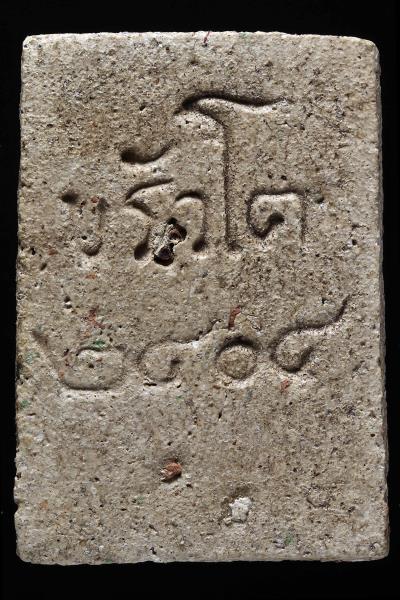 ขรัวโต
๒๔๐๔